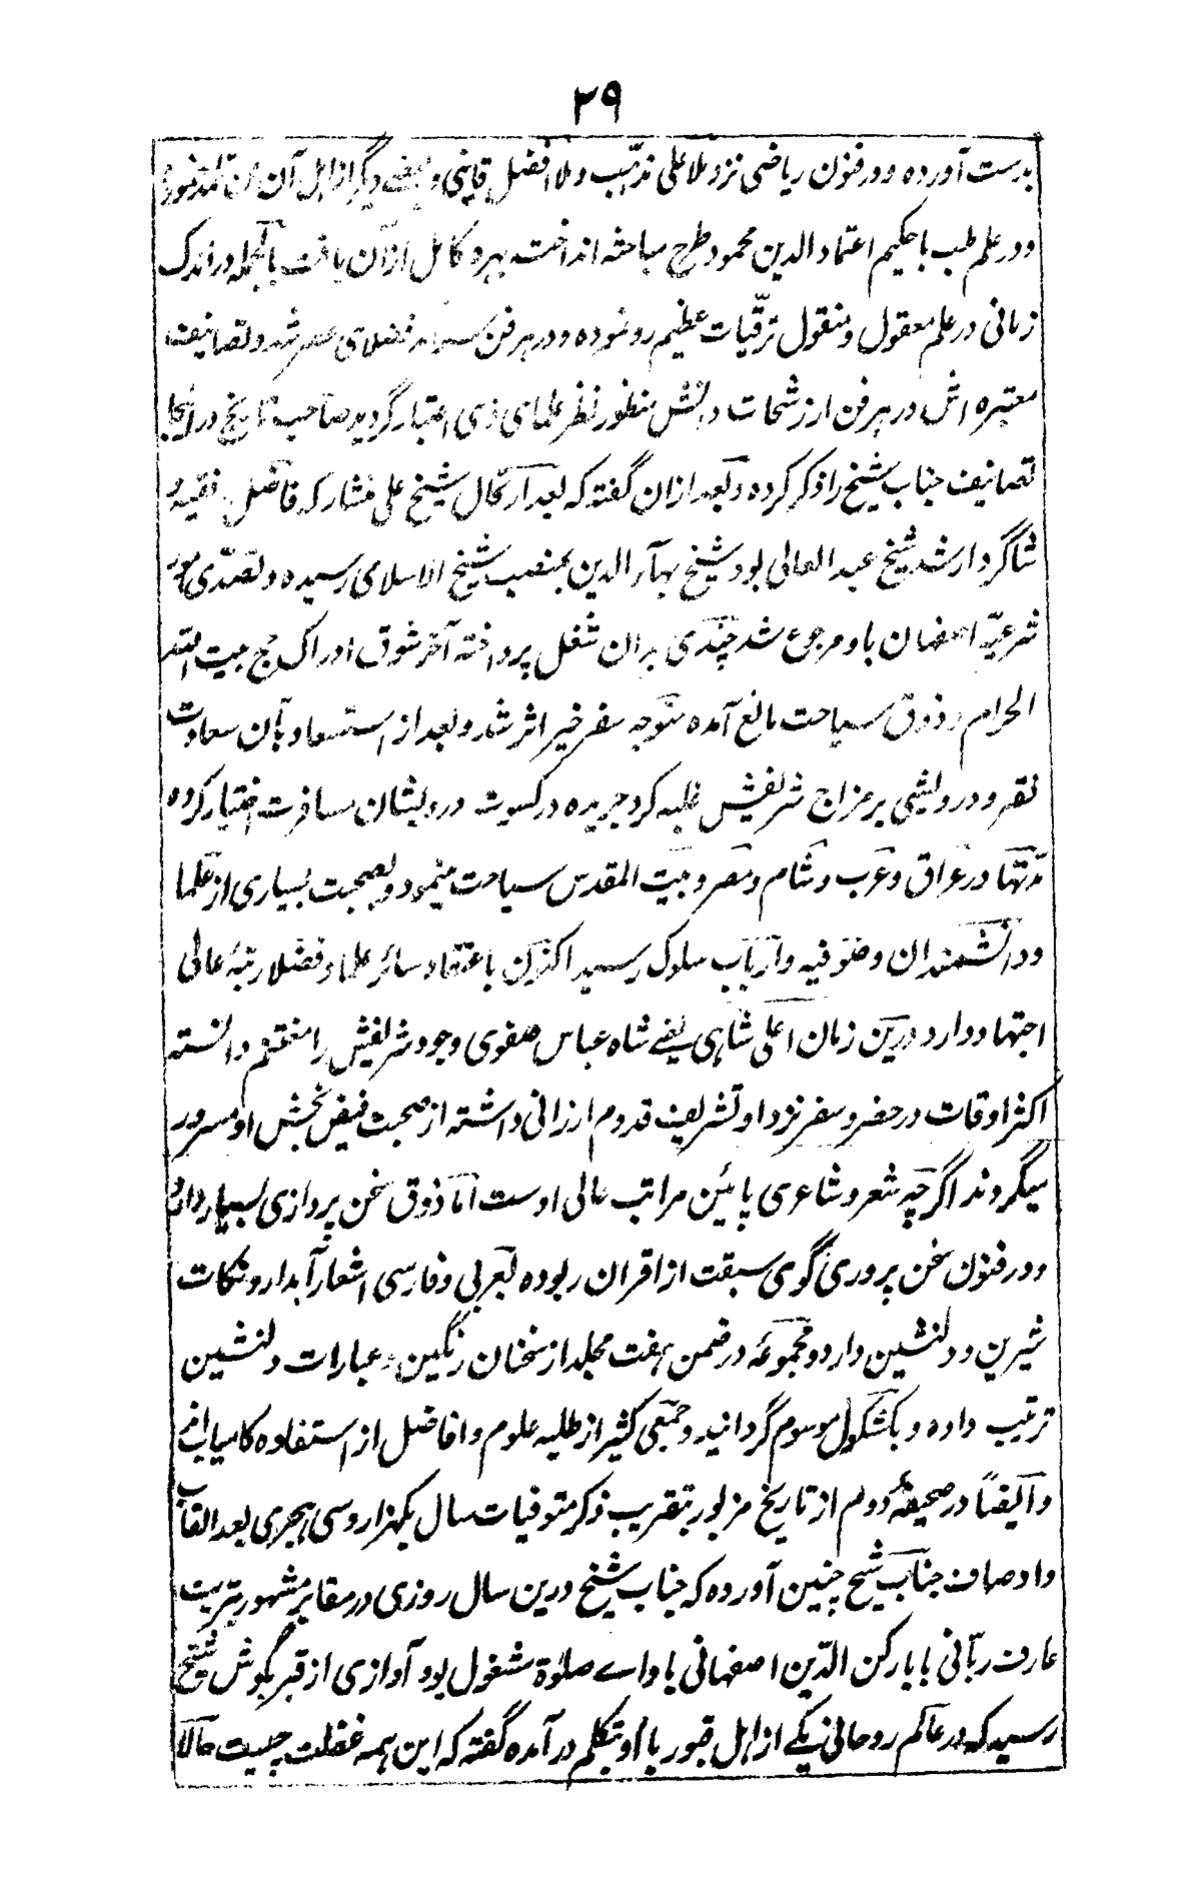 ۲۹
بدست آورده و در فنون ریاضی نزد ملا علی مذهّب و ملا افضل قاینی و بعضے دیگر از اهل آن فن تلمذ نموده
و در علم طب با حکیم اعتماد الدین محمود طرح مباحثه انداخت بهره کامل از آن یافت بالجمله در اندک
زمانی در علم معقول و منقول ترقّیات عظیم رو نموده و در هر فن فضلای عصر شد و تصانیف
معتبره اش در هر فن از رشحات دانش منظور نظر علمای ذی اعتبار گردید صاحب تاریخ در اینجا
تصانیف جناب شیخ را ذکر کرده و بعد ازان گفته که بعد ارتحال شیخ علی منشار که فاضل و فقیه و
شاگرد ارشد شیخ عبد العالی بود شیخ بهآء الدین بمنصب شیخ الاسلامی رسیده و تصدّی امور
شرعیّه اصفهان باو مرجوع شد چندی بران شغل پرداخته آخر شوق ادراک حج بیت الله
الحرام و ذوق سیاحت مانع آمده متوجه سفر خیر اثر شد و بعد از استسعاد بآن سعادت
فقر و درویشی بر مزاج شریفش غلبه کرد جریده در کسوت درویشان مسافرت اختیار کرده
مدّتها در عراق و عرب و شام و مصر و بیت المقدس سیاحت مینمود و بصحبت بسیاری از علما
و دانشمندان و صوفیه و ارباب سلوک رسید اکنون باعتقاد سائر علما و فضلا رتبۀ عالی
اجتهاد دارد درین زمان اعلی شاهی یعنے شاه عباس صفوی وجود شریفش را مغتنم دانسته
اکثر اوقات در حضر و سفر نزد او تشریف قدوم ارزانی داشته از صحبت فیض بخش او مسرور
میگردند اگرچه شعر و شاعری پائین مراتب عالی اوست امّا ذوق سخن پردازی بسیار دارد
و در فنون سخن پروری گوی سبقت از اقران ربوده بعربی و فارسی اشعار آبدار و نکات
شیرین و دلنشین دارد و مجموعۀ در ضمن هفت مجلد از سخنان رنگین و عبارات دلنشین
ترتیب داده و بکشکول موسوم گردانیده و جمعی کثیر از طلبه علوم و افاضل از استفاده کامیاب اند
و ایضاً در صحیفۀ دوم از تاریخ مزبور بتقریب ذکر متوفیات سال یکهزار و سی هجری بعد القاب
و اوصاف جناب شیخ چنین آورده که جناب شیخ درین سال روزی در مقابر مشهور بتربت
عارف ربّانی بابا رکن الدّین اصفهانی با داے صلوٰة مشغول بود آوازی از قبر بگوش شیخ
رسید که در عالم روحانی یکے از اهل قبور با او بتکلم در آمده گفته که این همه غفلت چیست حالا